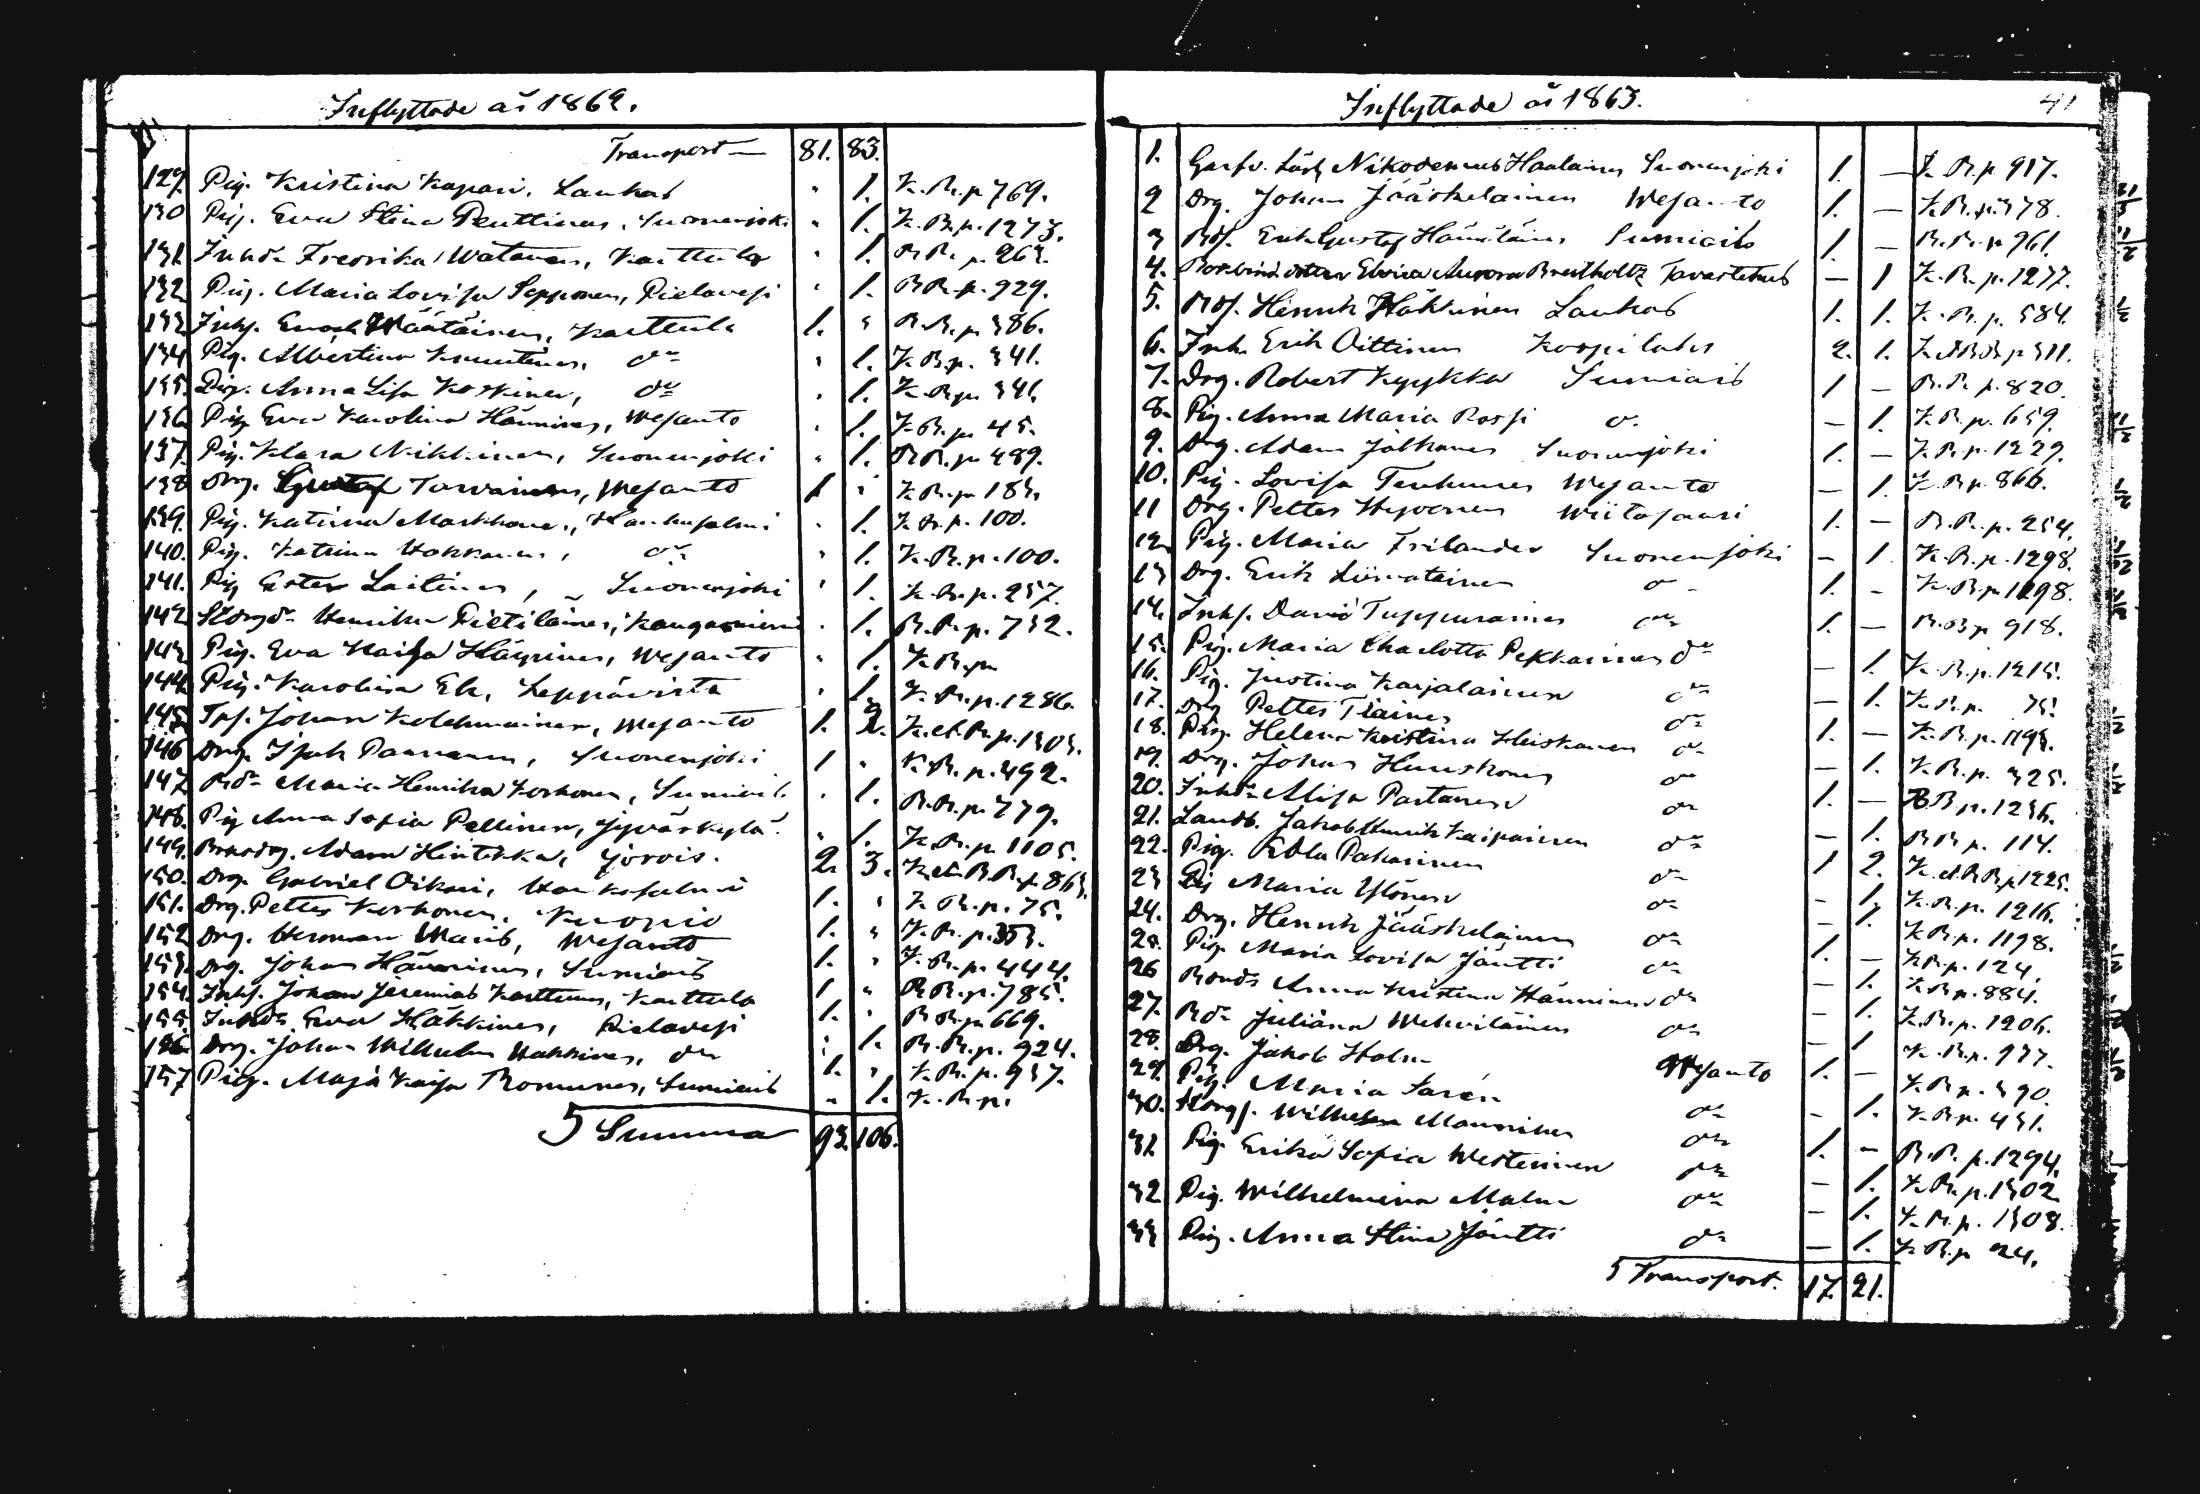 Inflyttade år 1862.
Transport 81. 83.
129. Pig. Kristina Kapari, Laukas " 1. K.B.p. 769.
130 Pig. Eva Stina Penttinen, Suonenjoki " 1. K.B.p. 1273.
131. Inhd:r Fredrika Watanen, Karttula " 1. B.B. p. 263.
132 Pig. Maria Lovisa Sepponen, Pielavesi " 1. B.B.p. 929.
133 Inhs. Enoch Wäätäinen, Karttula 1. " B.B.p. 386.
134 Pig. Albertina Knuutinen, d:o " 1. K.B.p. 341.
135. Pig. Anna Lisa Koskinen, d:o " 1. K.B.p. 341.
136 Pig Eva Karolina Hänninen, Wesanto " 1. K.B.p. 45.
137. Pig. Klara Nikkinen, Suonenjoki " 1. B.B.p. 489.
138 Drg. Gustaf Tarvainen, Wesanto 1 " K.B.p. 183.
139. Pig. Katrina Markkane, Hankasalmi " 1. K.B.p. 100.
140. Pig. Katrina Hokkanen, d:o " 1. K.B.p. 100.
141. Pig Ester Laitinen, Suonenjoki " 1. K.B.p. 257.
142 Skorpd:r Henrika Pietiläinen, Kangasniemi " 1. B.B.p. 732.
143. Pig. Eva Kaisa Häyrinen, Wesanto " 1. K.B.p.
144. Pig. Karolina Ek, Leppävirta " 1. K.B.p. 1286.
145. Tps. Johan Kolehmainen, Wesanto 1. 2. K. et B.p. 1303.
146 Drg. Isak Paananen, Suonenjoki 1 " K.B.p. 492.
147. Bd:r Maria Henrika Korhonen, Sumiais " 1. B.B.p. 779.
148. Pig Anna Sofia Pellinen, Jyväskylä " 1. K.B.p. 1105.
149. Adam Hintikka, Jorois. 2. 3. K. et B.B.p. 863.
150. Drg. Gabriel Oikari, Hankasalmi 1. " K.B.p. 75.
151. Drg. Petter Korhonen, Kuopio 1. " K.B.p. 353.
152 Drg. Herman Manis, Wesanto 1. " K.B.p. 444.
153. Drg. Johan Hänninen, Sumiais 1 " B.B.p. 785.
154. Inhs. Johan Jeremias Karttunen, Karttula 1. " B.B.p. 669.
155. Inhd:r Eva Hakkinen, Pielavesi " 1. B.B.p. 924.
156. Drg. Johan Wilhelm Hakkinen, d:o 1. " K.B.p. 937.
157 Pig. Maja Kaisa Romunen, Sumiais " 1. K.B.p.
Summa 93. 106.
Inflyttade år 1863. 41
1. Garfv. Lärl Nikodemus Haalainen Suonenjoki 1. — K.B.p. 917.
2 Drg. Johan Jääskelainen Wesanto 1. — K.B.p. 378.
3 Bds. Erik Gustaf Hämäläinen Sumiais 1. — B.B.p. 961.
4. Elvira Aurora Breitholtz Tavastehus — 1 K.B.p. 1277.
5. Bds. Henrik Häkkinen Laukas 1. 1. K.B.p. 584.
6. Inh. Erik Oittinen Korpilaks 2. 1. K et B.B.p. 311.
7. Drg. Robert Kyykka Sumiais 1 — B.B.p. 820.
8. Pig. Anna Maria Rossi d:o — 1. K.B.p. 659.
9. Drg. Adam Jalkanen Suonenjoki 1. — K.B.p. 1229.
10. Pig. Lovisa Tenhunen Wesanto — 1. K.B.p. 866.
11 Drg. Petter Hyvönen Wiitasaari 1. — B.B.p. 254.
12. Pig. Maria Frilander Suonenjoki — 1 K.B.p. 1298.
13 Drg. Erik Liimatainen d:o 1. — K.B.p. 1298.
14. Inhs. David Tuppurainen d:o 1. — B.B.p. 918.
15. Pig. Maria Charlotta Pekkarinen d:o — 1. K.B.p. 1215.
16. Pig. Justina Karjalainen d:o — 1. K.B.p. 75.
17. Drg Petter Tiainen d:o 1. — K.B.p. 1193.
18. Pig. Helena Kristina Heiskanen d:o — 1. K.B.p. 325.
19. Drg. Johan Huuskonen d:o 1. — B.B.p. 1236.
20. Inhd:r Alisa Partanen d:o — 1. B.B.p. 114.
21. Landb. Jakob Henrik Kaipainen d:o 1 2. K. et B.B.p. 1225.
22. Pig. Ebba Pakarinen d:o — 1. K.B.p. 1216.
23 Pig Maria Ylönen d:o — 1. K.B.p. 1198.
24. Drg. Henrik Jääskelainen d:o 1. — K.B.p. 124.
25. Pig. Maria Lovisa Jäntti d:o — 1. K.B.p. 884.
26 Bonds Anna Kristina Hänninen d:o — 1. K.B.p. 1206.
27. Bd:r Juliana Wehviläinen d:o — 1 K.B.p. 937.
28. Drg. Jakob Holm Wesanto 1. — K.B.p. 390.
29. Pig. Maria Sarén d:o — 1. K.B.p. 431.
30. Skorps. Wilhelm Manninen d:o 1. — B.B.p. 1294.
31 Pig. Erika Sofia Westerinen d:o — 1. K.B.p. 1302
32. Pig. Wilhelmina Malm d:o — 1. K.B.p. 1308.
33 Pig. Anna Stina Jäntti d:o — 1. K.B.p. 24.
Transport. 17. 21.